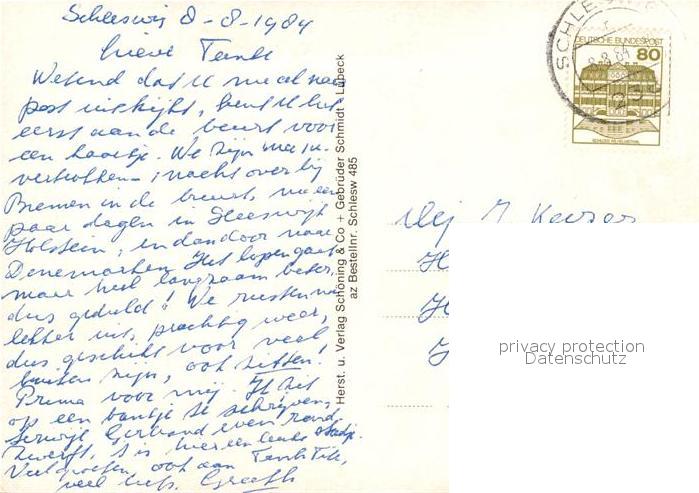 Schleswig 8-8-1984
Lieve Tante
Wetend dat U meestal naar
post uitkijkt, bent U het
eerst aan de beurt voor
een kaartje. We zijn
vertrokken 1 nacht over bij
Bremen in de buurt, nu een
paar dagen in Sleeswijk
Holstein, en dan door naar
Denemarken. Het lopen gaat
maar heel langzaam beter,
dus geduld! We rusten nu
lekker uit, prachtig weer,
dus geschikt voor veel
buiten zijn, ook zitten!
Prima voor mij. Ik zit
op een bankje te schrijven,
terwijl Gerbrand even rond
zwerft, 't is hier een leuk stadje.
Veel groeten, ook aan Tante
veel liefs.
Herst. u. Verlag Schöning & Co + Gebrüder Schmidt - Lübeck
az Bestellnr. Schlesw 485
SCHLESWIG
8.8.84
DEUTSCHE BUNDESPOST
80
SCHLOSS WILHELMSTHAL
Mej J. Keizer
privacy protection
Datenschutz